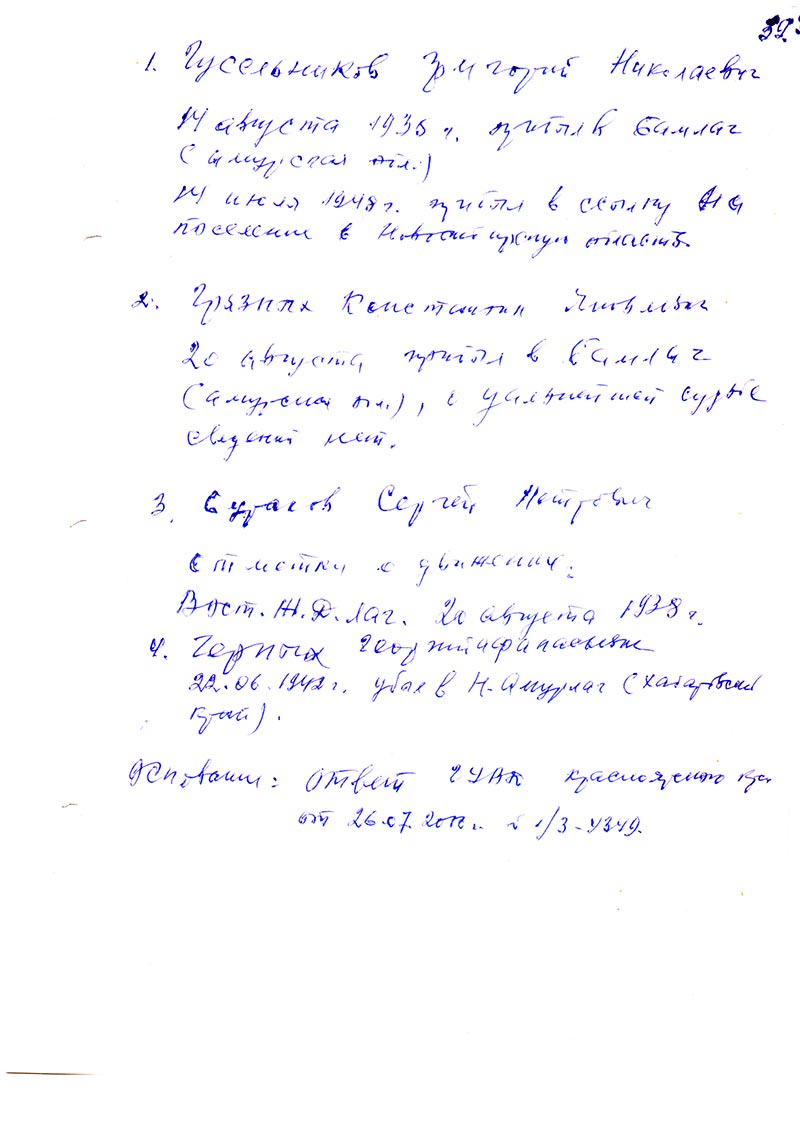 39.
1. Гусельников Григорий Николаевич
14 августа 1938 г. прибыл в Бамлаг
(Амурская обл.)
14 июля 1948 г. прибыл в ссылку на
поселение в Новосибирскую область.
2. Грязных Константин Яковлевич
20 августа прибыл в Бамлаг
(Амурская обл.), о дальнейшей судьбе
сведений нет.
3. Сергей Петрович
Отметки о движении:
Вост. Ж.Д. лаг. 20 августа 1938 г.
4. Черных Георгий Афанасьевич
22.06.1942 г. убыл в Н-Амурлаг (Хабаровский
край).
Основание: Ответ Красноярского края
от 26.07. № 1/3-4349.